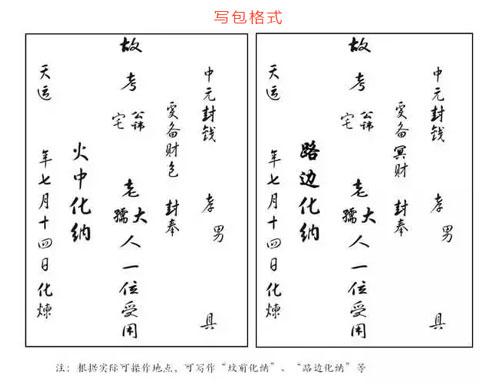 写包格式
中元封钱 孝男 具
爰备财包 封奉
故考 公讳 宅 老 大 孺 人一位受用
火中化纳
天运 年七月十四日化煉
中元封钱 孝男 具
爰备冥财 封奉
故考 公讳 宅 老 大 孺 人一位受用
路边化纳
天运 年七月十四日化煉
注：根据实际可操作地点，可写作“坟前化纳”、“路边化纳”等